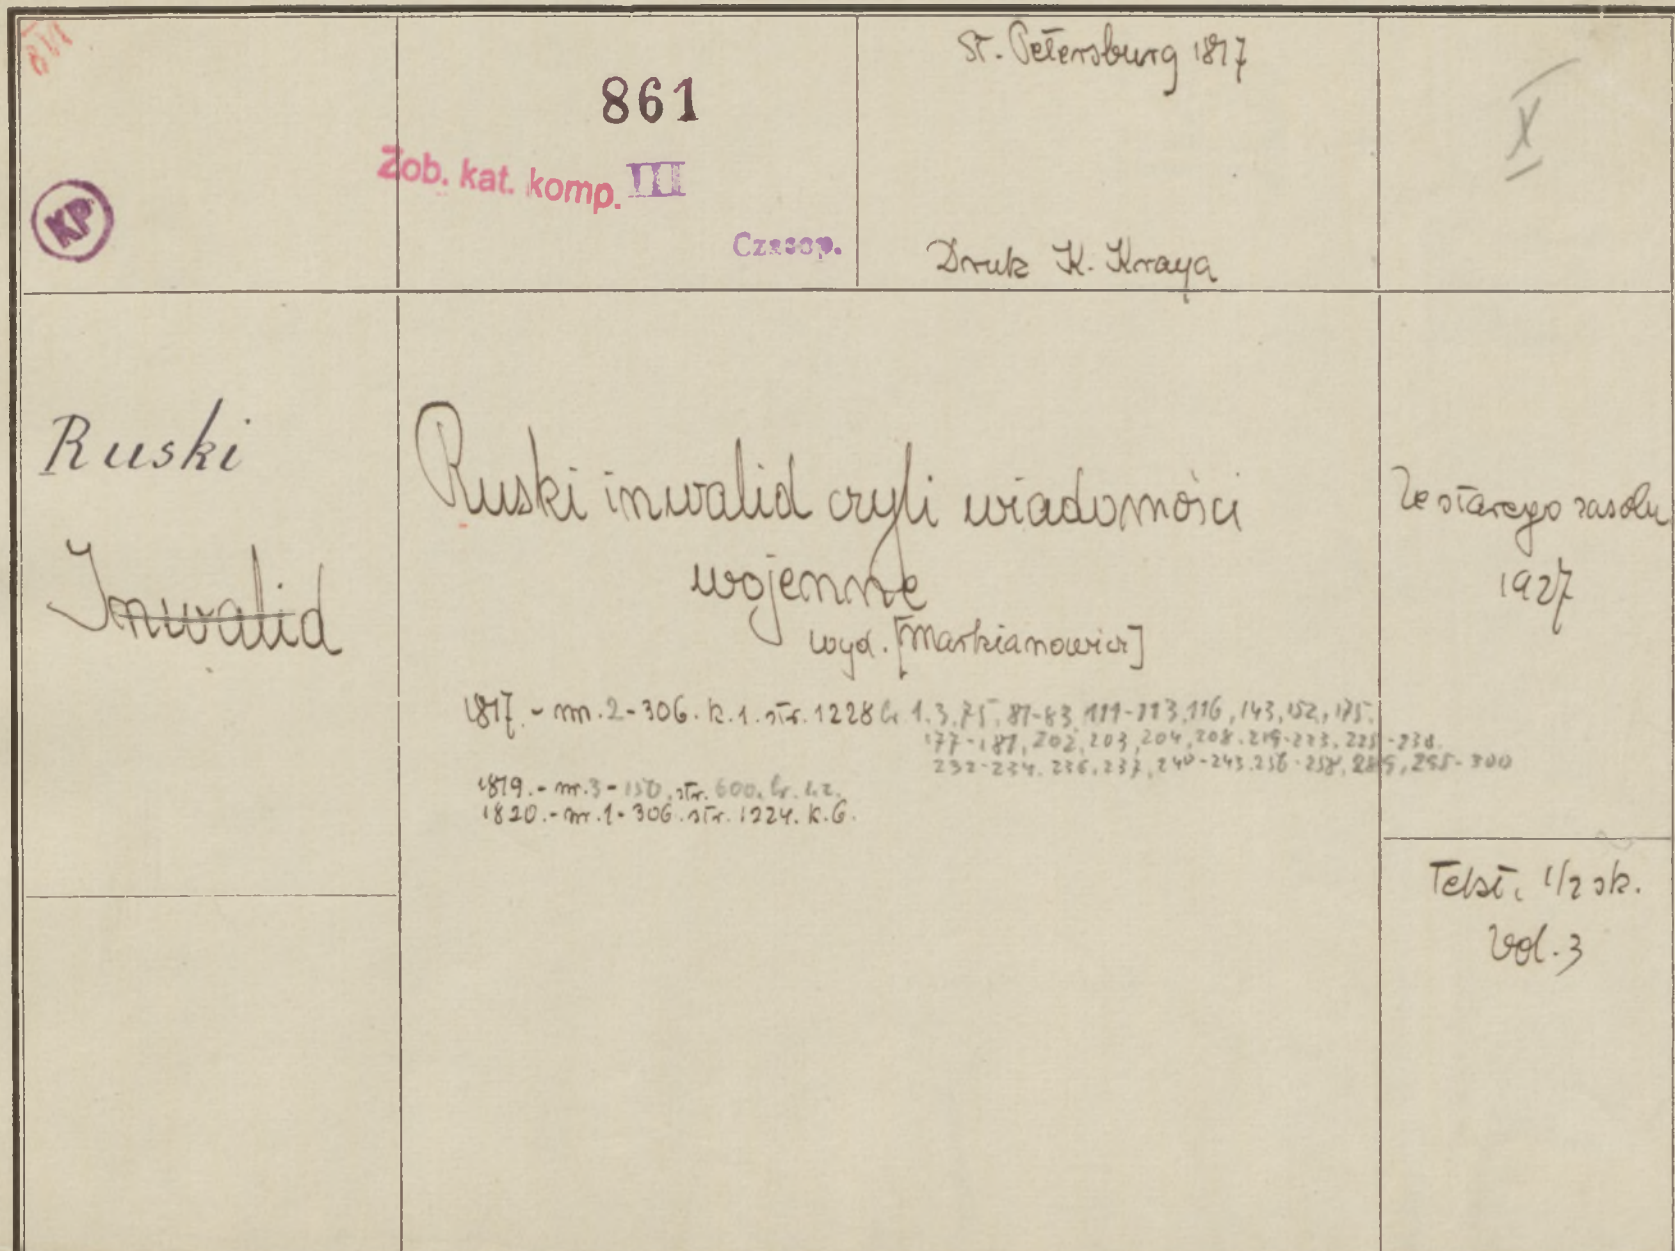 861
Zob. kat. komp. III
Czasop.
KP
St. Petersburg 1817
Druk K. Kraya
X
Ruski
Inwalid
Ruski inwalid czyli wiadomości
wojenne
wyd. [Markianowicz]
Ze starego zasobu
1927
1817. - nr. 2-306. k. 1. str. 1228 br. 1.3, 75, 81-83, 111-113, 116, 143, 152, 175.
177-181, 202, 203, 204, 208. 219-223, 225-230.
232-234. 236, 237, 240-243. 256-258, 295-300
1819. - nr. 3-150, str. 600. br. 1.2.
1820. - nr. 1-306. str. 1224. k. 6.
Tekst. 1/2 sk.
Vol. 3